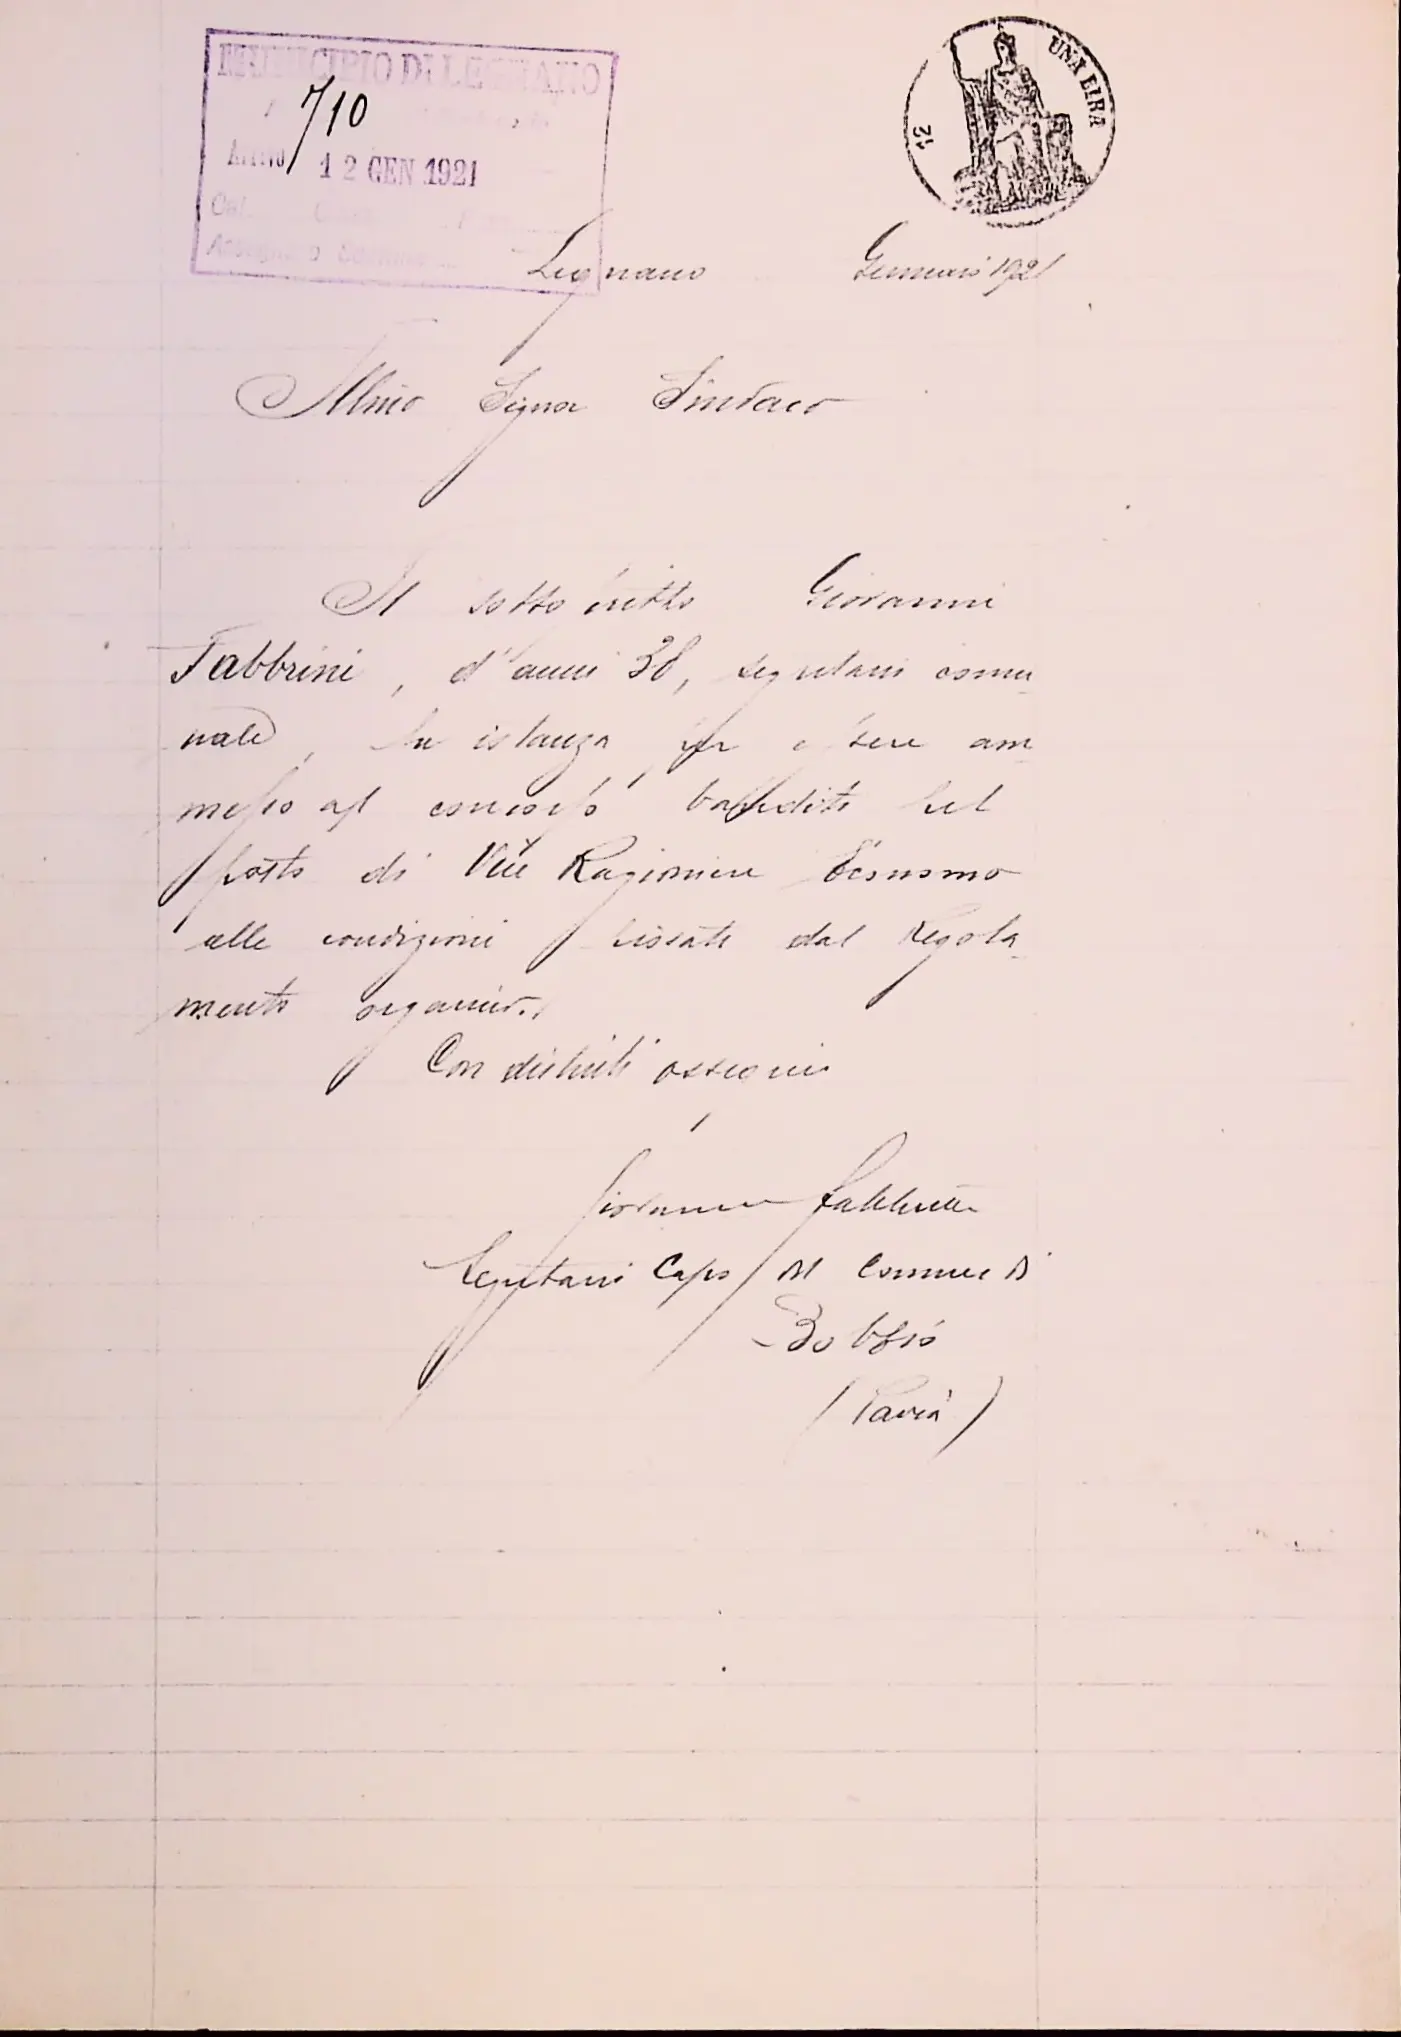 MUNICIPIO DI LEGNANO
710
ANNO 12 GEN 1921
UNA LIRA
12
Legnano Gennaio 1921
Illmo Signor Sindaco
Il sottoscritto Giovanni
Fabbrini, d'anni 38, segretario comu-
nale, fa istanza per essere am-
messo al concorso bandito pel
posto di Vice Ragioniere Economo
alle condizioni fissate dal Regola-
mento organico.
Con distinti ossequi
Giovanni Fabbrini
Segretario Capo del Comune di
Bobbio
(Pavia)